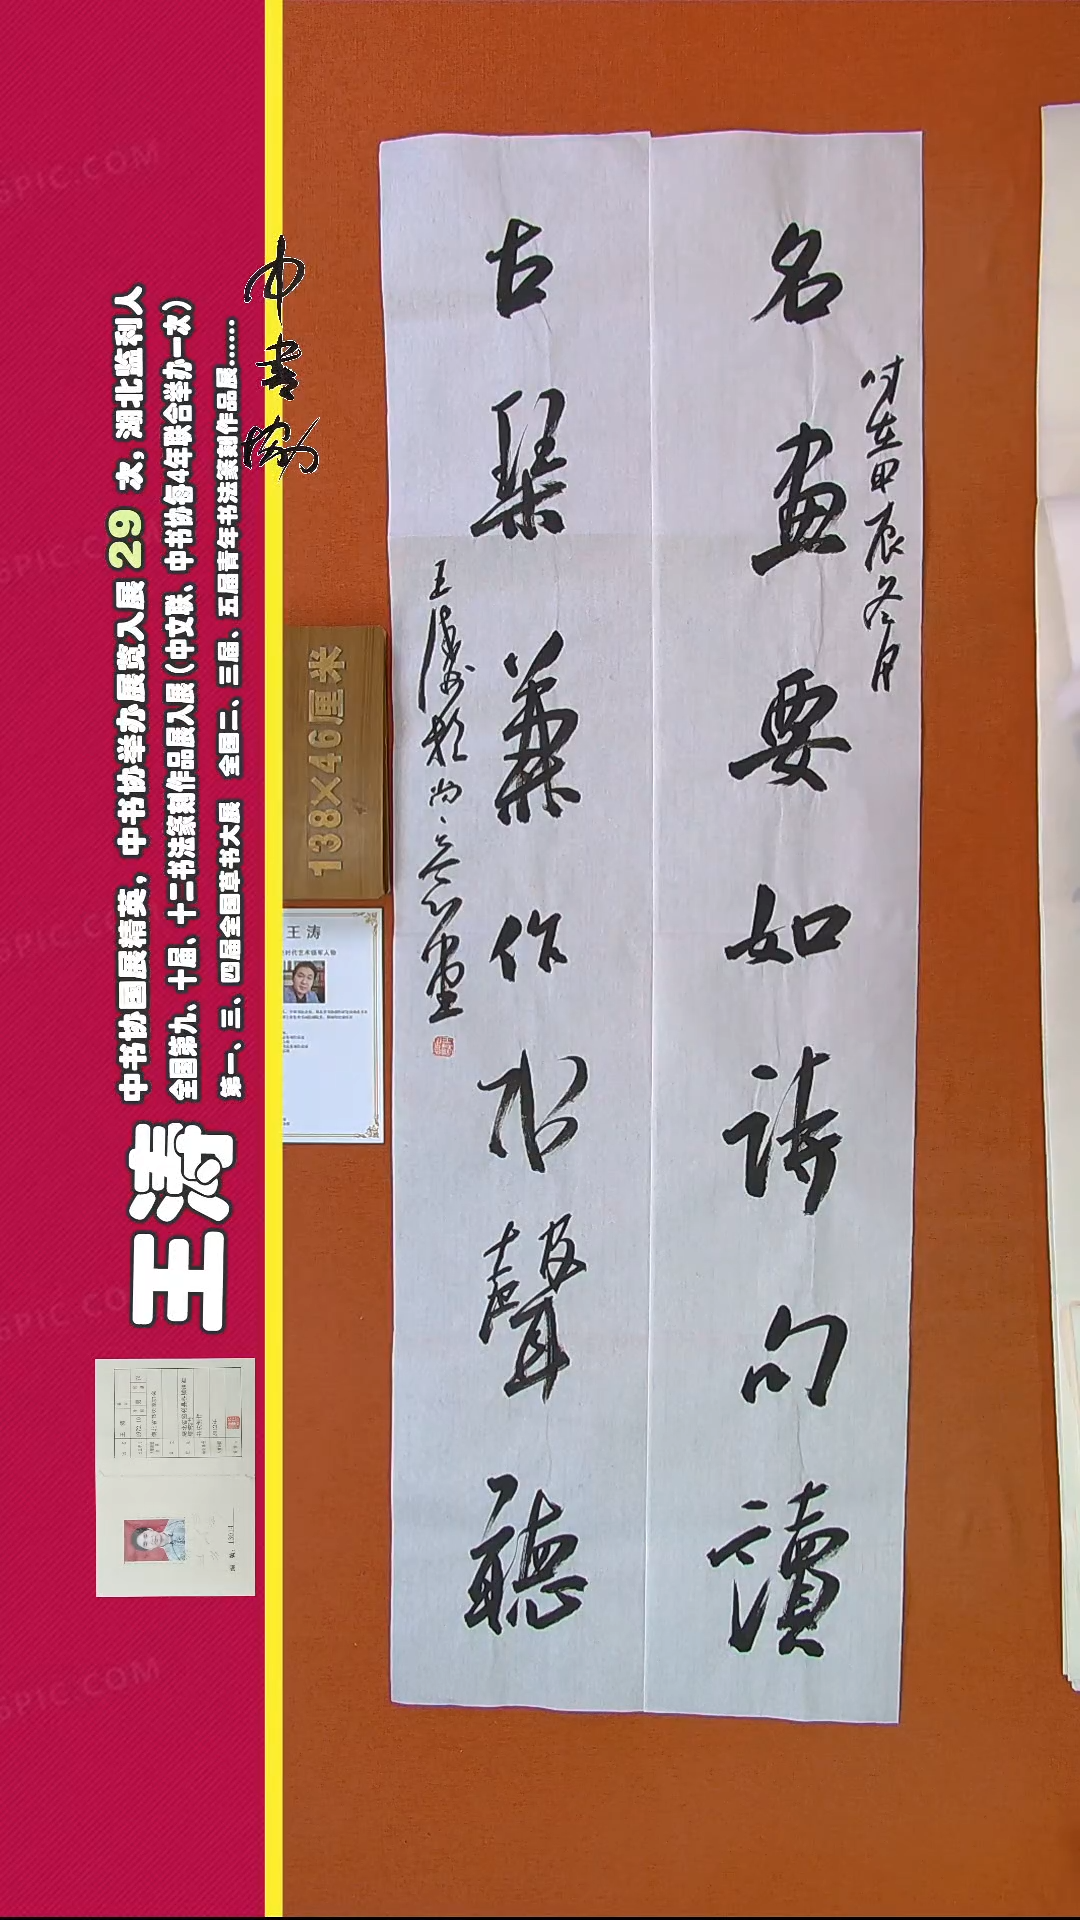 名画要如诗句读
时在甲辰冬月
古琴兼作水声聽
王涛书於尚意堂
中书协
中书协国展精英，中书协举办展览入展 29 次，湖北监利人
全国第九、十届、十二书法篆刻作品展入展（中文联、中书协每4年联合举办一次）
第一、三、四届全国草书大展 全国二、三届、五届青年书法篆刻作品展……
王涛
138×46厘米
王涛